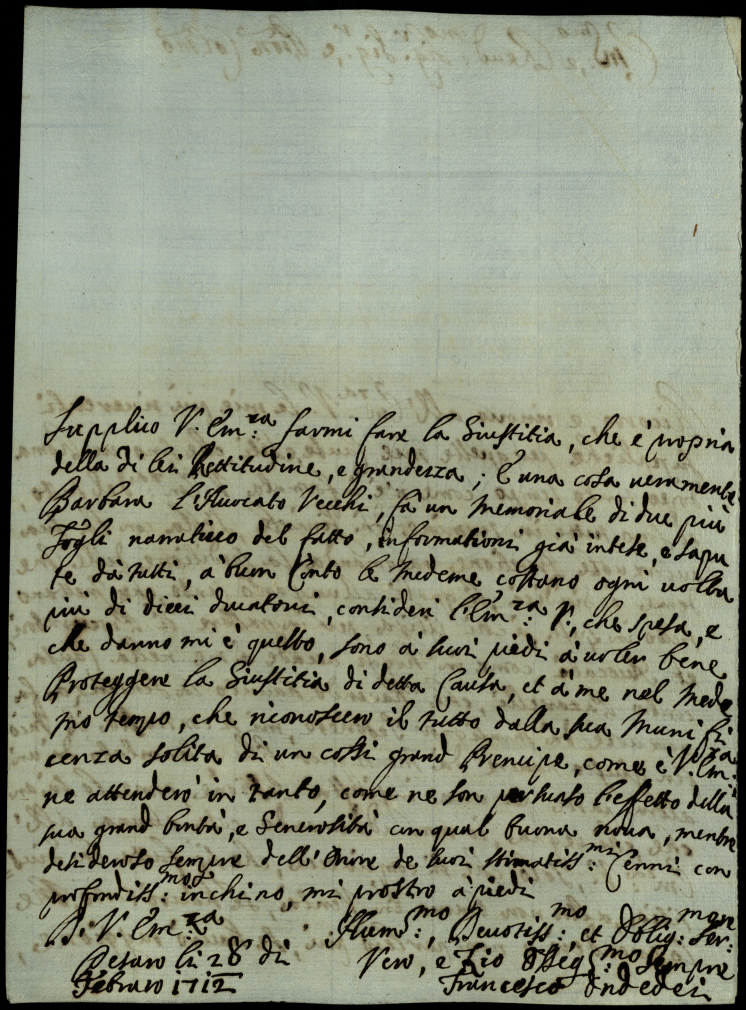 Supplico V. Em:za farmi fare la Giustitia, che è propria
della di lei Rettitudine, e grandezza; È una cosa veramente
Barbara l'Avocato Vecchi, fà un memoriale di due più
Fogli narrativo del fatto, informationi già intese, e sapu
te dà tutti, à buon Conto le medeme costano ogni volta
più di dieci ducatoni, consideri l'Em:za V., che spesa, e
che danno mi è questo, sono à suoi piedi à voler bene
Proteggere la Giustitia di detta Causa, et à me nel mede
mo tempo, che riconoscerò il tutto dalla sua munifi
cenza solita di un cossi grand Prencipe, come è V. Em:za
ne attenderò in tanto, come ne son persuaso l'effetto della
sua grand bontà, e Generosità con qual buona nova, mentre
desideroso sempre dell'Onore de suoi stimatiss:mi Cenni con
profondiss:mo inchino, mi prostro à piedi
D. V. Em:za Humil:mo, Devotiss:mo, et Oblig:mo Ser:
Pesaro li 28 di vero, e Zio Obleg:mo Sempre
Febraro 1712 Francesco Ondedei